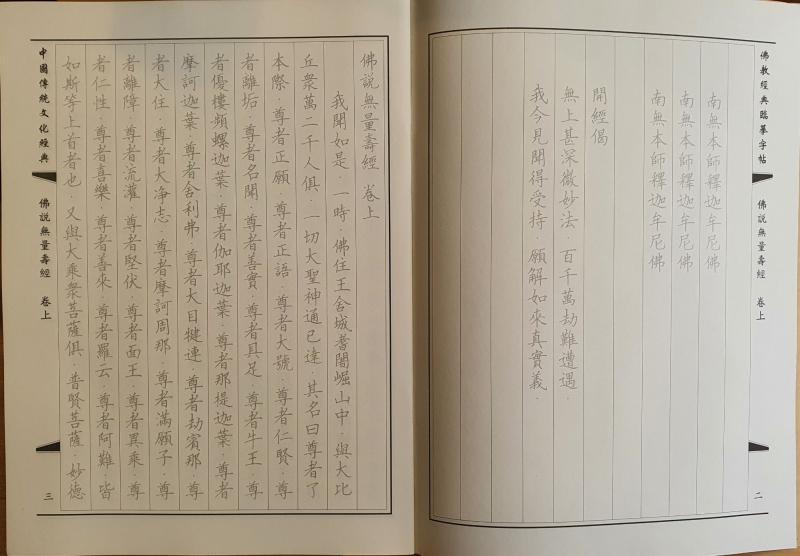 佛教經典臨摹字帖
佛説無量壽經 卷上
二
南無本師釋迦牟尼佛
南無本師釋迦牟尼佛
南無本師釋迦牟尼佛
開經偈
無上甚深微妙法．百千萬劫難遭遇．
我今見聞得受持．願解如來真實義．
佛説無量壽經 卷上
我聞如是．一時．佛住王舍城耆闍崛山中．與大比
丘衆萬二千人俱．一切大聖神通已達．其名曰尊者了
本際．尊者正願．尊者正語．尊者大號．尊者仁賢．尊
者離垢．尊者名聞．尊者善實．尊者具足．尊者牛王．尊
者優樓頻螺迦葉．尊者伽耶迦葉．尊者那提迦葉．尊者
摩訶迦葉．尊者舍利弗．尊者大目犍連．尊者劫賓那．尊
者大住．尊者大净志．尊者摩訶周那．尊者滿願子．尊
者離障．尊者流灌．尊者堅伏．尊者面王．尊者異乘．尊
者仁性．尊者喜樂．尊者善來．尊者羅云．尊者阿難．皆
如斯等上首者也．又與大乘衆菩薩俱．普賢菩薩．妙德
中國傳統文化經典
佛説無量壽經 卷上
三